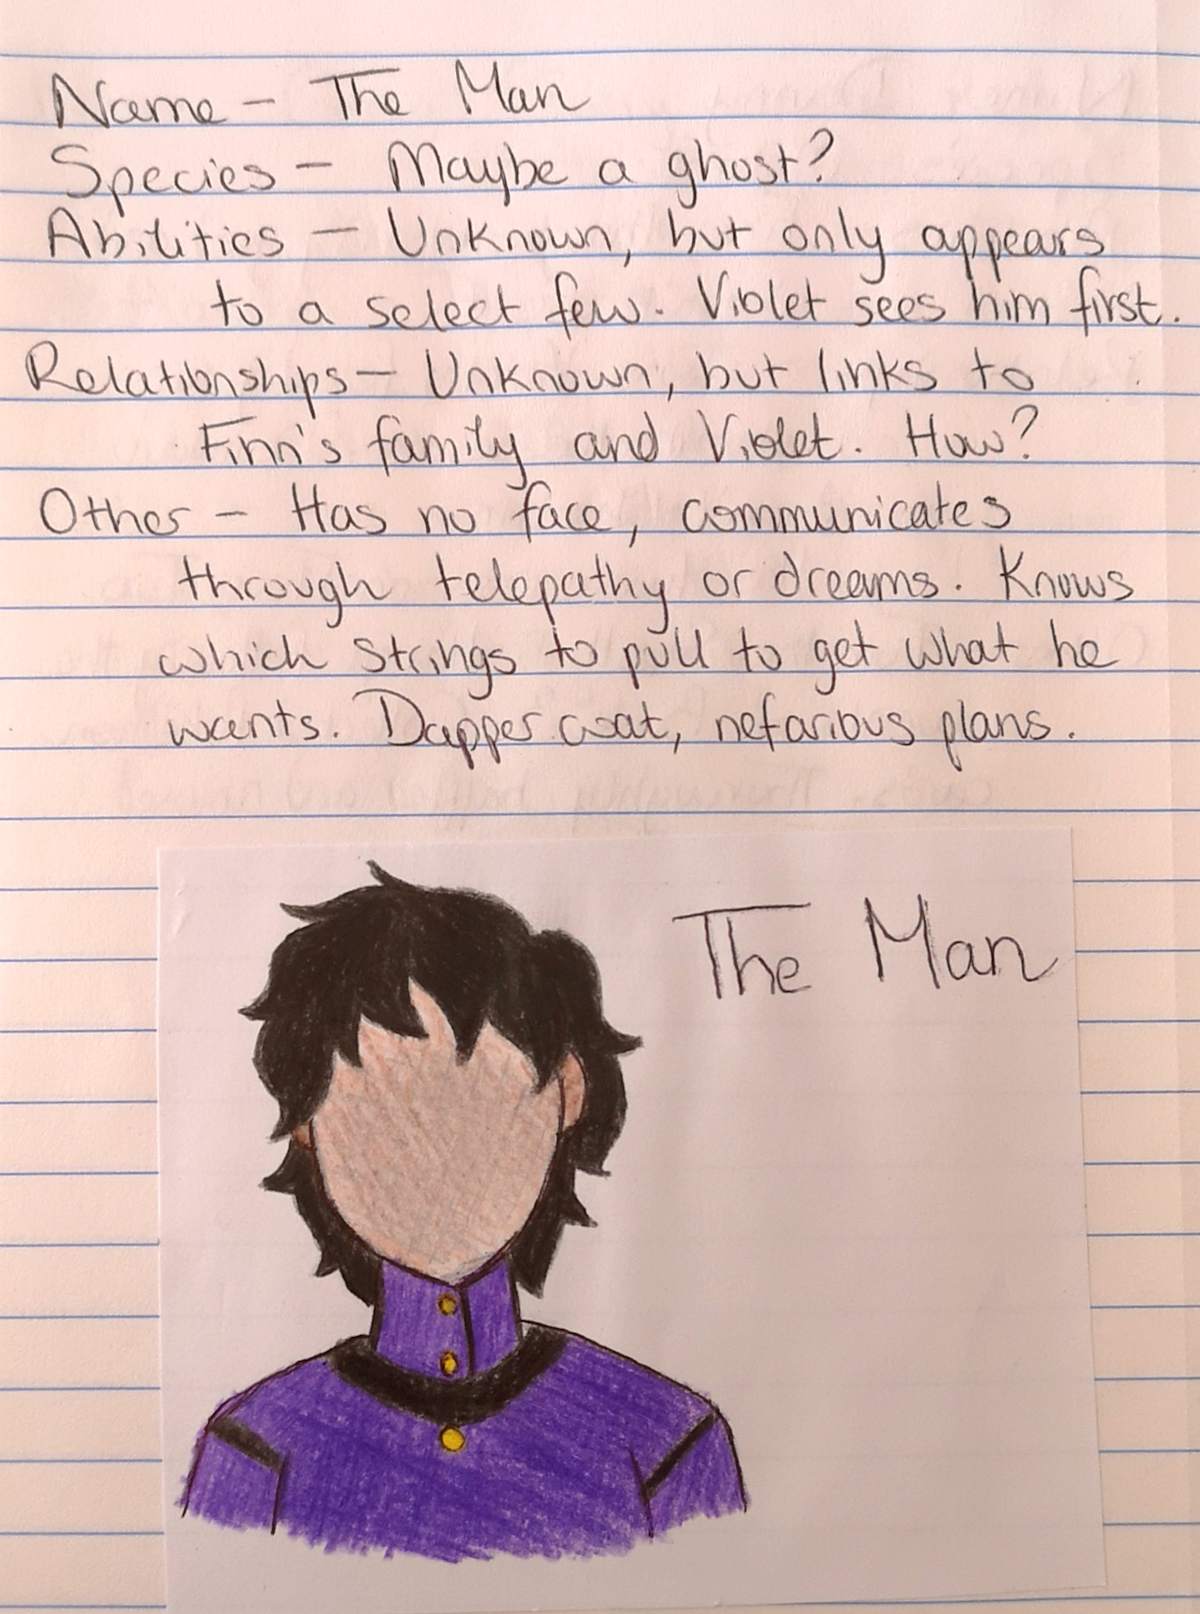 Name - The Man
Species - Maybe a ghost?
Abilities - Unknown, but only appears
to a select few. Violet sees him first.
Relationships - Unknown, but links to
Finn's family and Violet. How?
Other - Has no face, communicates
through telepathy or dreams. Knows
which strings to pull to get what he
wants. Dapper coat, nefarious plans.
The Man